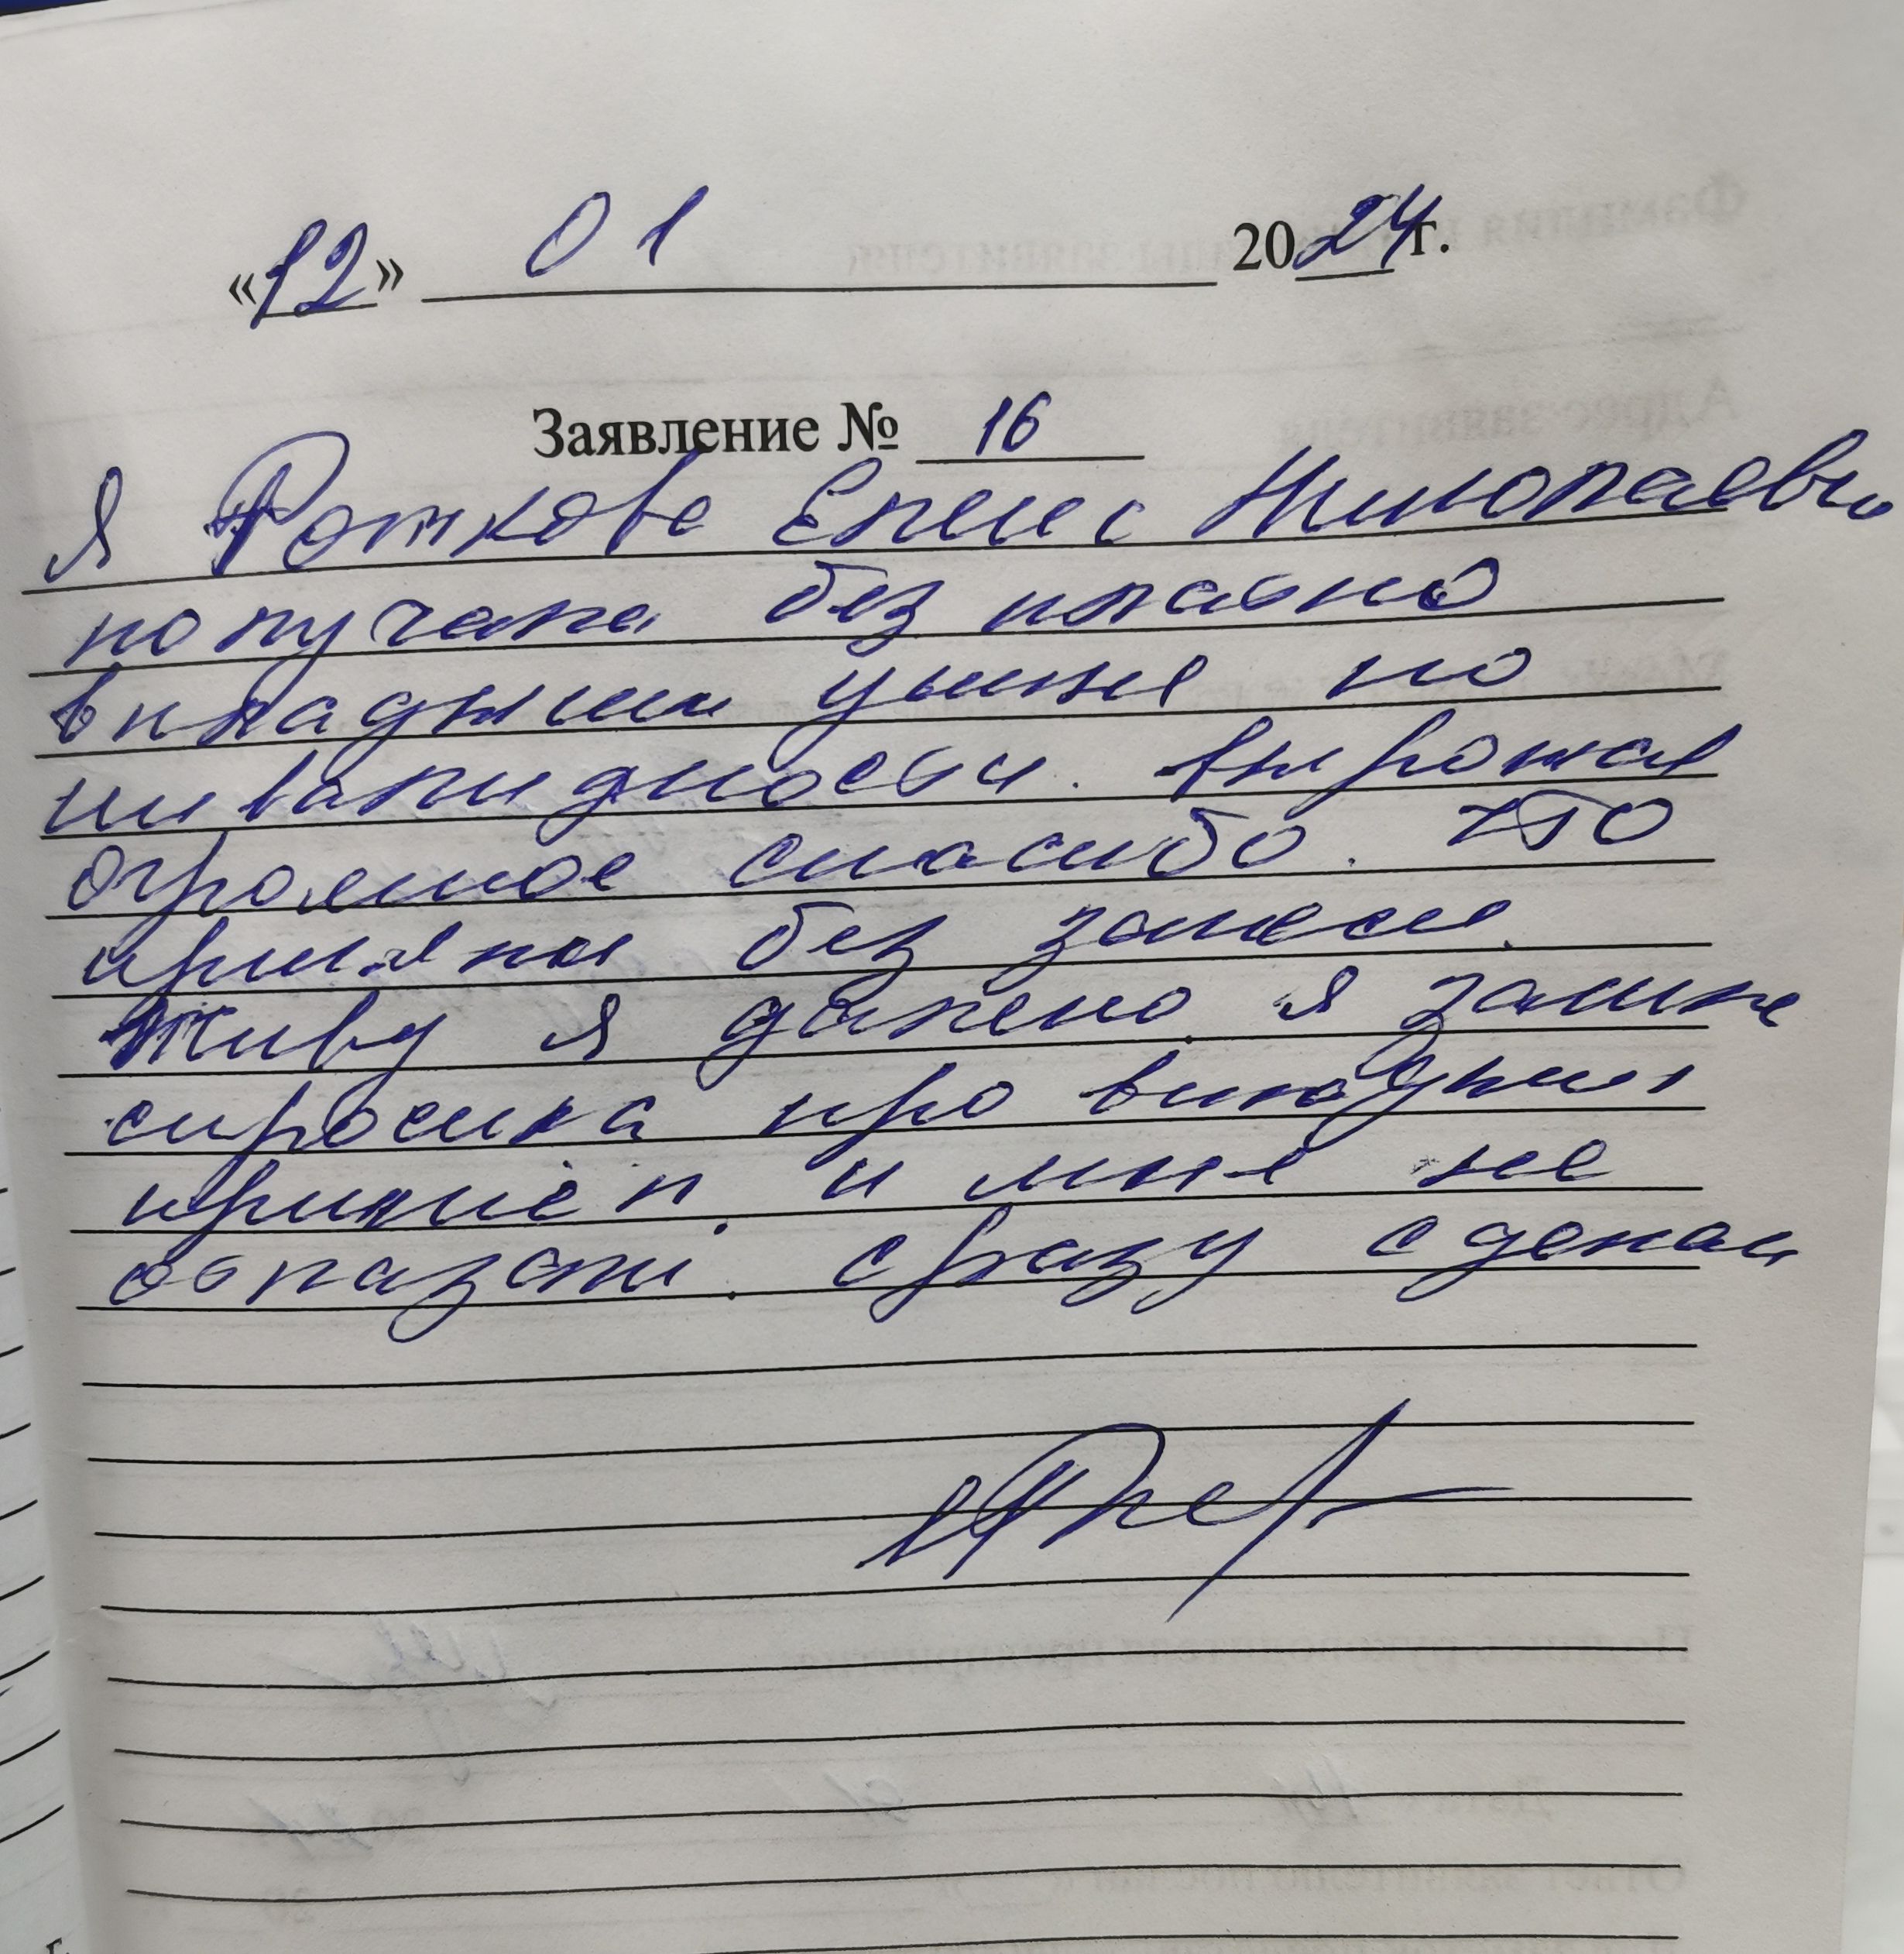 «12» 01 2024 г.
Заявление № 16
Я Роткова Елена Николаевна
получала без платно
вкладыши ушные по
инвалидности. Выражаю
огромное спасибо. что
приняли без записи.
Живу я далеко. я зашла
спросила про вкладыши
принял. и мне не
отказали. сразу сделали